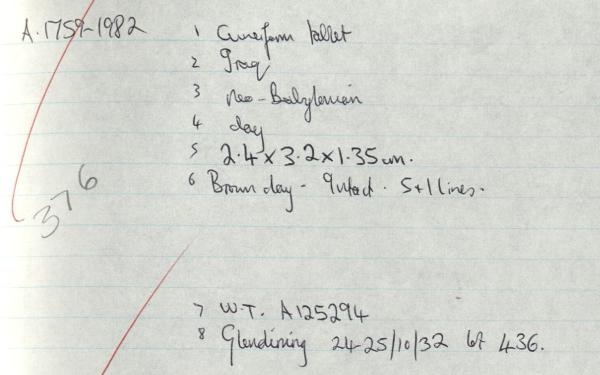 A.1759-1982
1 Cuneiform tablet
2 Iraq
3 neo-Babylonian
4 clay
5 2.4 x 3.2 x 1.35 cm.
376
6 Brown clay - Intact. 5+1 lines.
7 W.T. A125294
8 Glendining 24-25/10/32 lot 436.